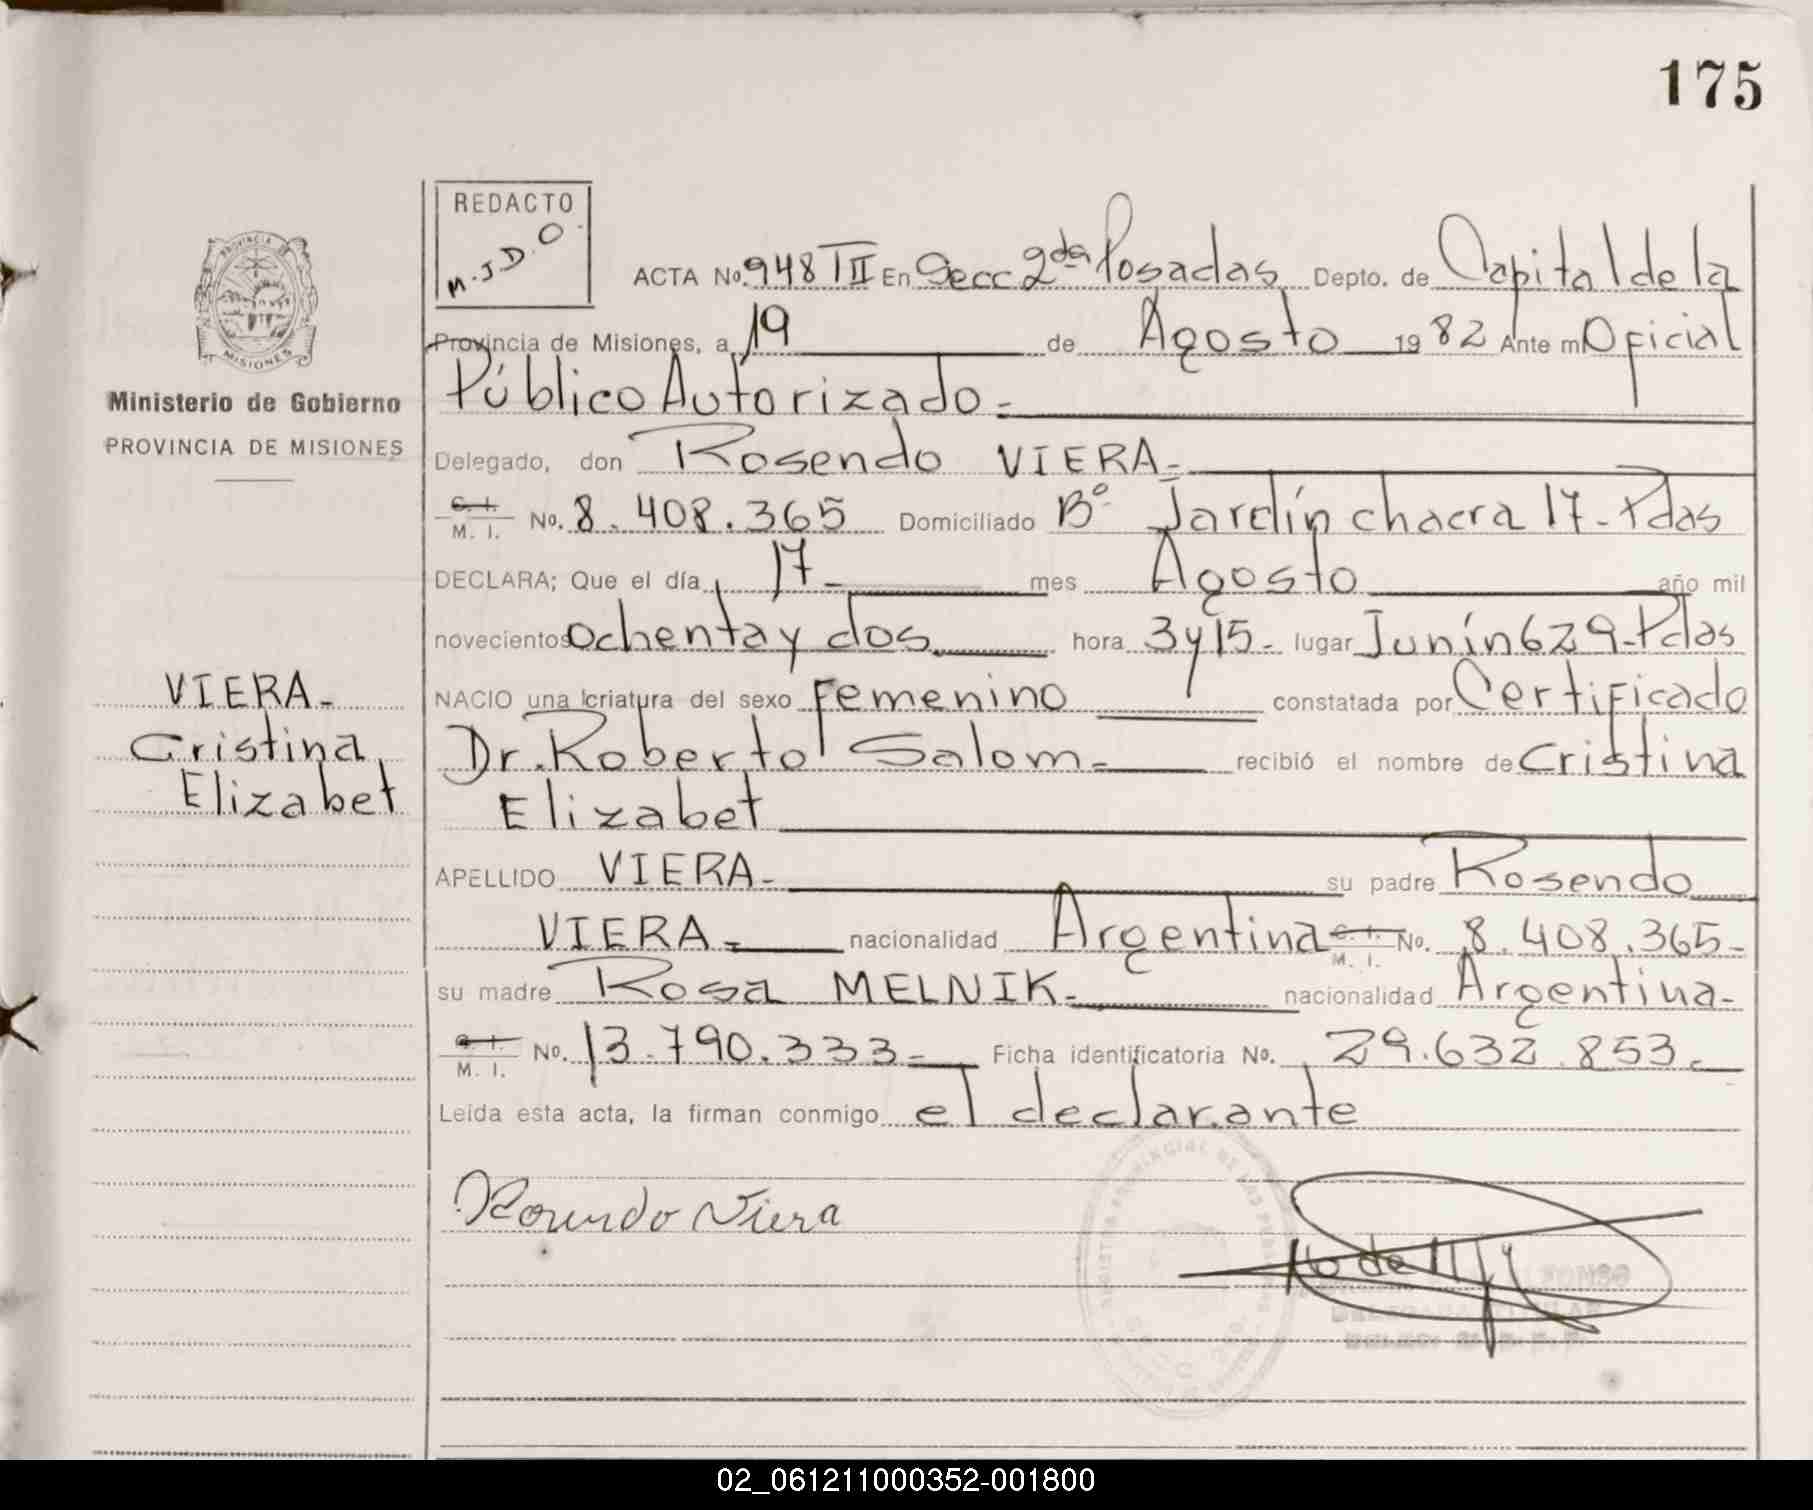 175
REDACTO
M.J.D.O.
PROVINCIA DE
MISIONES
Ministerio de Gobierno
PROVINCIA DE MISIONES
ACTA No. 948 TII En Secc 2da Posadas Depto. de Capital de la
Provincia de Misiones, a 19 de Agosto 1982 Ante mi Oficial
Público Autorizado.-
Delegado, don Rosendo VIERA.-
C. I.
M. I. No. 8.408.365 Domiciliado Bº Jardín chacra 17-Pdas
DECLARA; Que el día 17- mes Agosto año mil
novecientos ochenta y dos. hora 3y15- lugar Junín 629-Pdas
VIERA.-
NACIO una criatura del sexo Femenino constatada por Certificado
Cristina
Dr. Roberto Salom.- recibió el nombre de Cristina
Elizabet
Elizabet
APELLIDO VIERA- su padre Rosendo
VIERA.- nacionalidad Argentina C. I. No. 8.408.365-
M. I.
su madre Rosa MELNIK.- nacionalidad Argentina-
C. I.
M. I. No. 13.790.333- Ficha identificatoria No. 29.632.853.-
Leída esta acta, la firman conmigo el declarante
Rosendo Viera
02_061211000352-001800